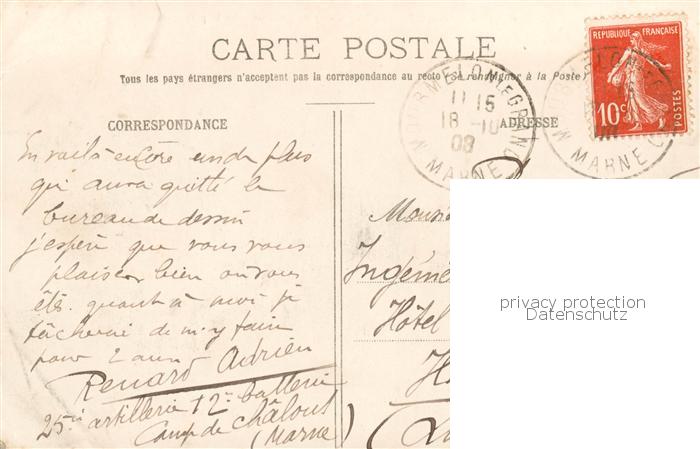 CARTE POSTALE
Tous les pays étrangers n'acceptent pas la correspondance au recto (Se renseigner à la Poste)
REPUBLIQUE FRANÇAISE
10c
POSTES
MOURMELON-LE-GRAND
11 15
18-10
08
MARNE
MARNE
CORRESPONDANCE
ADRESSE
En voilà encore un de plus
qui aura quitté le
bureau de dessin
j'espère que vous vous
plaisez bien où vous
êts. quant à moi je
tâcherai de m'y faire
pour 2 ans
Renard Adrien
25e artillerie 12e batterie
Camp de Châlons
(Marne)
Monsie
Ingénie
Hôtel
privacy protection
Datenschutz